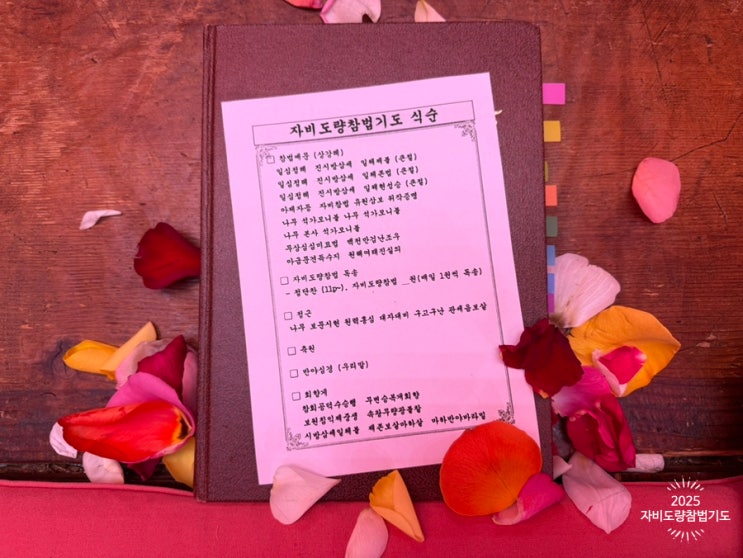 자비도량참법기도 식순
□ 참법배문 (상강례)
일심정례 진시방삼세 일체제불 (큰절)
일심정례 진시방삼세 일체존법 (큰절)
일심정례 진시방삼세 일체현성승 (큰절)
아제자등 자비참법 유원삼보 위작증명
나무 석가모니불 나무 석가모니불
나무 본사 석가모니불
무상심심미묘법 백천만겁난조우
아금문견득수지 원해여래진실의
□ 자비도량참법 독송
- 정단찬 (11p~), 자비도량참법 __권(매일 1권씩 독송)
□ 정근
나무 보문시현 원력홍심 대자대비 구고구난 관세음보살
□ 축원
□ 반야심경 (우리말)
□ 회향게
참회공덕수승행 무변승복개회향
보원침익제중생 속왕무량광불찰
시방삼세일체불 제존보살마하살 마하반야바라밀
2025
자비도량참법기도